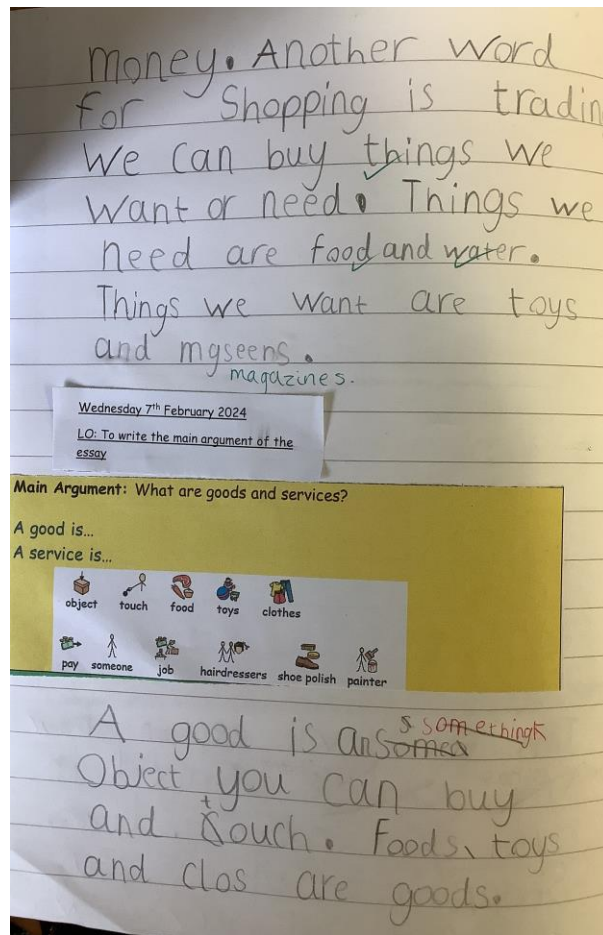 money. Another word
for Shopping is tradin
We can buy things we
Want or need. Things we
need are food and water.
Things we want are toys
and mgseens.
magazines.
Wednesday 7th February 2024
LO: To write the main argument of the
essay
Main Argument: What are goods and services?
A good is...
A service is...
object touch food toys clothes
pay someone job hairdressers shoe polish painter
A good is an
Object you can buy
and touch. Foods, toys
and clos are goods.